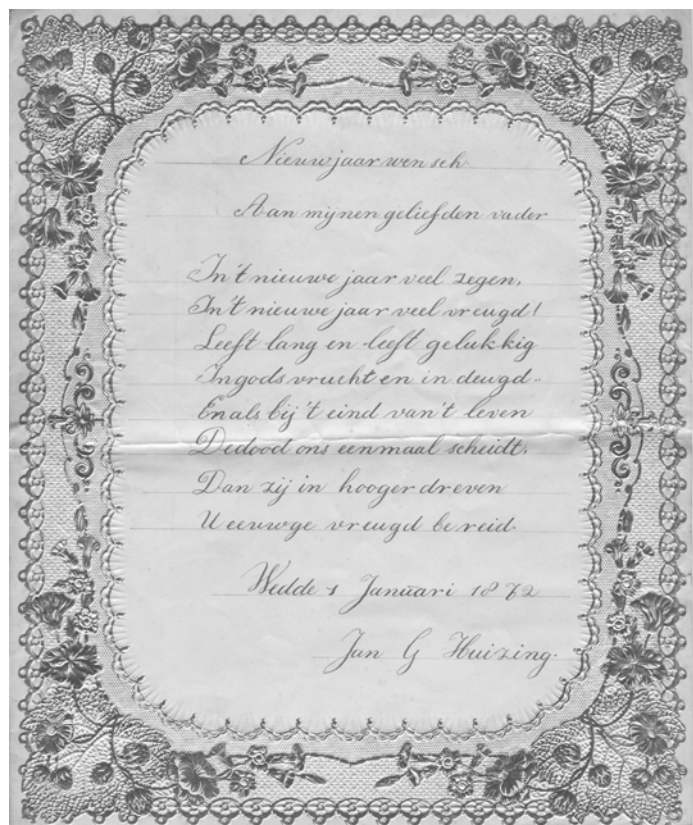 Nieuwjaarwensch.
Aan mijnen geliefden vader
In't nieuwe jaar veel zegen,
In't nieuwe jaar veel vreugd!
Leeft lang en leeft gelukkig
In gods vrucht en in deugd..
En als bij 't eind van't leven
De dood ons eenmaal scheidt,
Dan zij in hooger dreven
U eeuwge vreugd bereid.
Wedde 1 Januari 1872
Jan G Huizing.